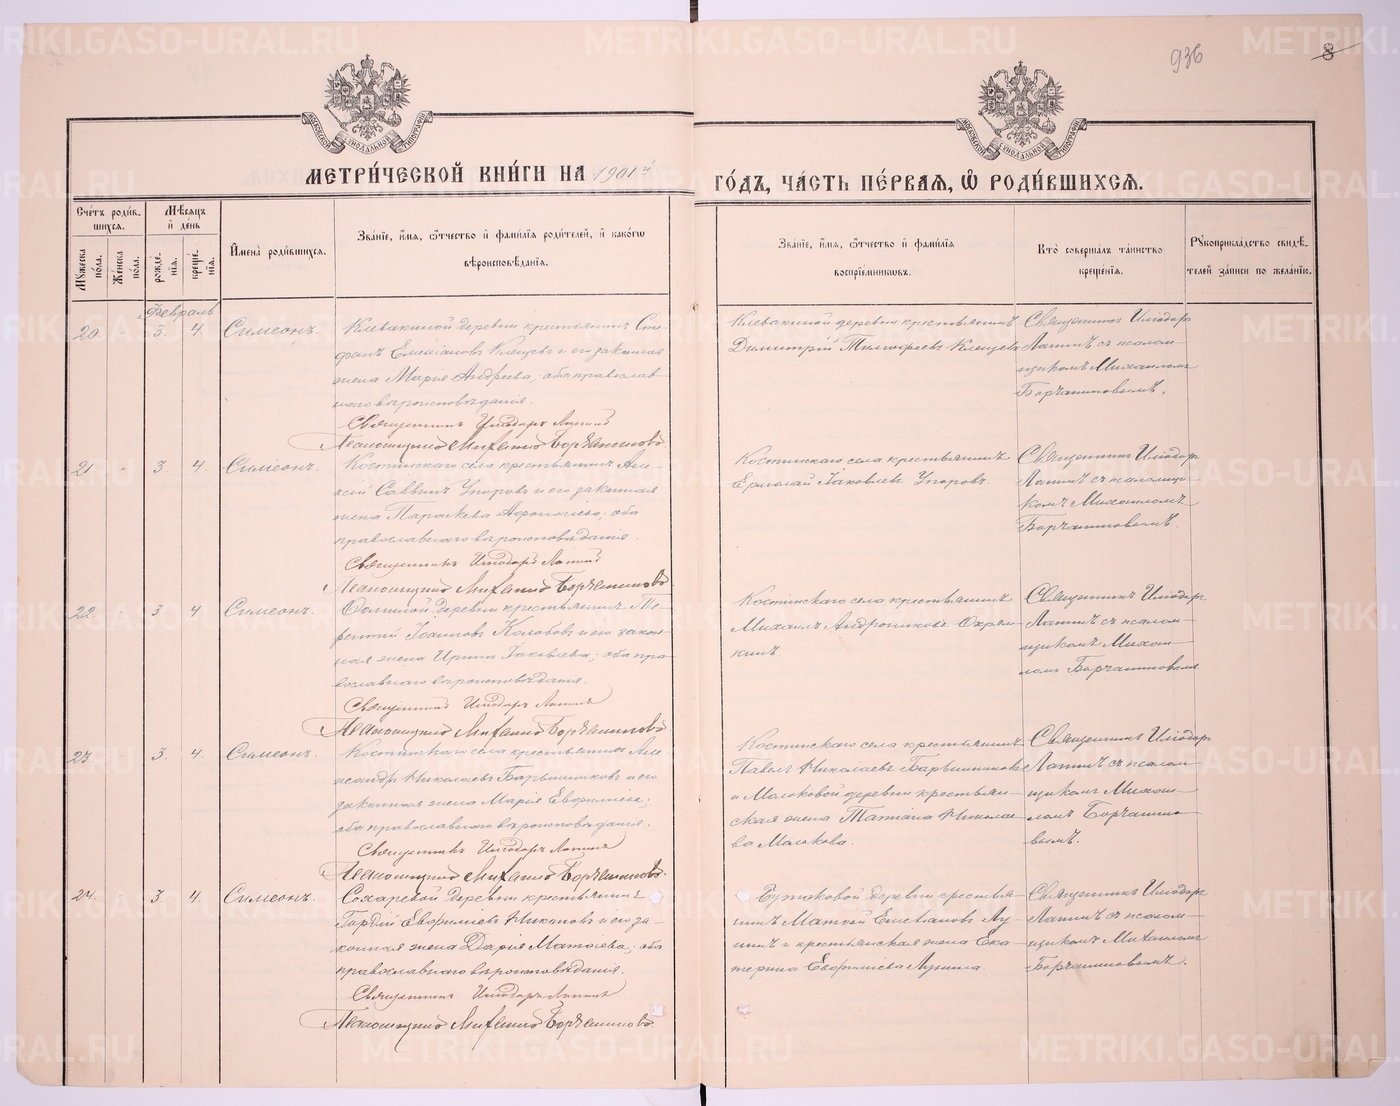 METRIKI.GASO-URAL.RU
936
8
МЕТРИ́ЧЕСКОЙ КНИ́ГИ НА 1901й
ГО́ДЪ, ЧА́СТЬ ПЕ́РВАЯ, Ѿ РОДИ́ВШИХСѦ.
Сче́тъ роди́в-
шихся.
Мѣсяцъ
и҆ де́нь
Му́жеска
по́ла.
Же́нска
по́ла.
рожде́-
нїя.
креще́-
нїя.
И҆мена̀ роди́вшихся.
Зва́нїе, и҆́мя, ѻ҆́тчество и҆ фами́лїя роди́телей, и҆ како́гѡ
вѣроисповѣ́данїя.
Зва́нїе, и҆́мя, ѻ҆́тчество и҆ фами́лїя
воспрїе́мниковъ.
Кто̀ соверша́лъ та́инство
креще́нїя.
Рꙋкоприкла́дство свидѣ́-
телей за́писи по жела́нїю.
Февраль
20. - 3. 4. Симеонъ.
Клевакиной деревни крестьянинъ Сте-
фанъ Емелiановъ Клещевъ и его законная
жена Марiя Андреева; оба православ-
наго вѣроисповѣданiя.
Священникъ Илiодоръ Лапинъ
Псаломщикъ Михаилъ Борчаниновъ
Клевакиной деревни крестьянинъ
Димитрiй Тимофеевъ Клещевъ
Священникъ Илiодоръ
Лапинъ съ псалом-
щикомъ Михаиломъ
Борчаниновымъ.
21. - 3. 4. Симеонъ.
Костинскаго села крестьянинъ Але-
ксiй Саввинъ Упоровъ и его законная
жена Параскева Афонасiева; оба
православнаго вѣроисповѣданiя.
Священникъ Илiодоръ Лапинъ
Псаломщикъ Михаилъ Борчаниновъ
Костинскаго села крестьянинъ
Ермолай Iаковлевъ Упоровъ.
Священникъ Илiодоръ
Лапинъ съ псаломщи-
комъ Михаиломъ
Борчаниновымъ.
22. 3. 4. Симеонъ.
деревни крестьянинъ Те-
рентiй Iоанновъ Колобовъ и его закон-
ная жена Ирина Iаковлева; оба пра-
вославнаго вѣроисповѣданiя.
Священникъ Илiодоръ Лапинъ
Псаломщикъ Михаилъ Борчаниновъ
Костинскаго села крестьянинъ
Михаилъ Андрониковъ Охрям-
кинъ
Священникъ Илiодоръ
Лапинъ съ псалом-
щикомъ Михаи-
ломъ Борчаниновымъ
23. 3. 4. Симеонъ.
Костинскаго села крестьянинъ Але-
ксандръ Николаевъ Барышниковъ и его
законная жена Марiя Евфимiева;
оба православнаго вѣроисповѣданiя.
Священникъ Илiодоръ Лапинъ
Псаломщикъ Михаилъ Борчаниновъ
Костинскаго села крестьянинъ
Павелъ Николаевъ Барышниковъ
и Молоковой деревни крестьян-
ская жена Татiана Николае-
ва Молокова.
Священникъ Илiодоръ
Лапинъ съ псалом-
щикомъ Михаи-
ломъ Борчанино-
вымъ.
24. 3. 4. Симеонъ.
Сохаревой деревни крестьянинъ
Гордiй Евфимiевъ Никоновъ и его за-
конная жена Дарiя Матѳiева; оба
православнаго вѣроисповѣданiя.
Священникъ Илiодоръ Лапинъ
Псаломщикъ Михаилъ Борчаниновъ
Бутаковой деревни крестья-
нинъ Матѳей Лу-
нинъ и крестьянская жена Ека-
терина Евфимiева Лунина.
Священникъ Илiодоръ
Лапинъ съ псалом-
щикомъ Михаиломъ
Борчаниновымъ.